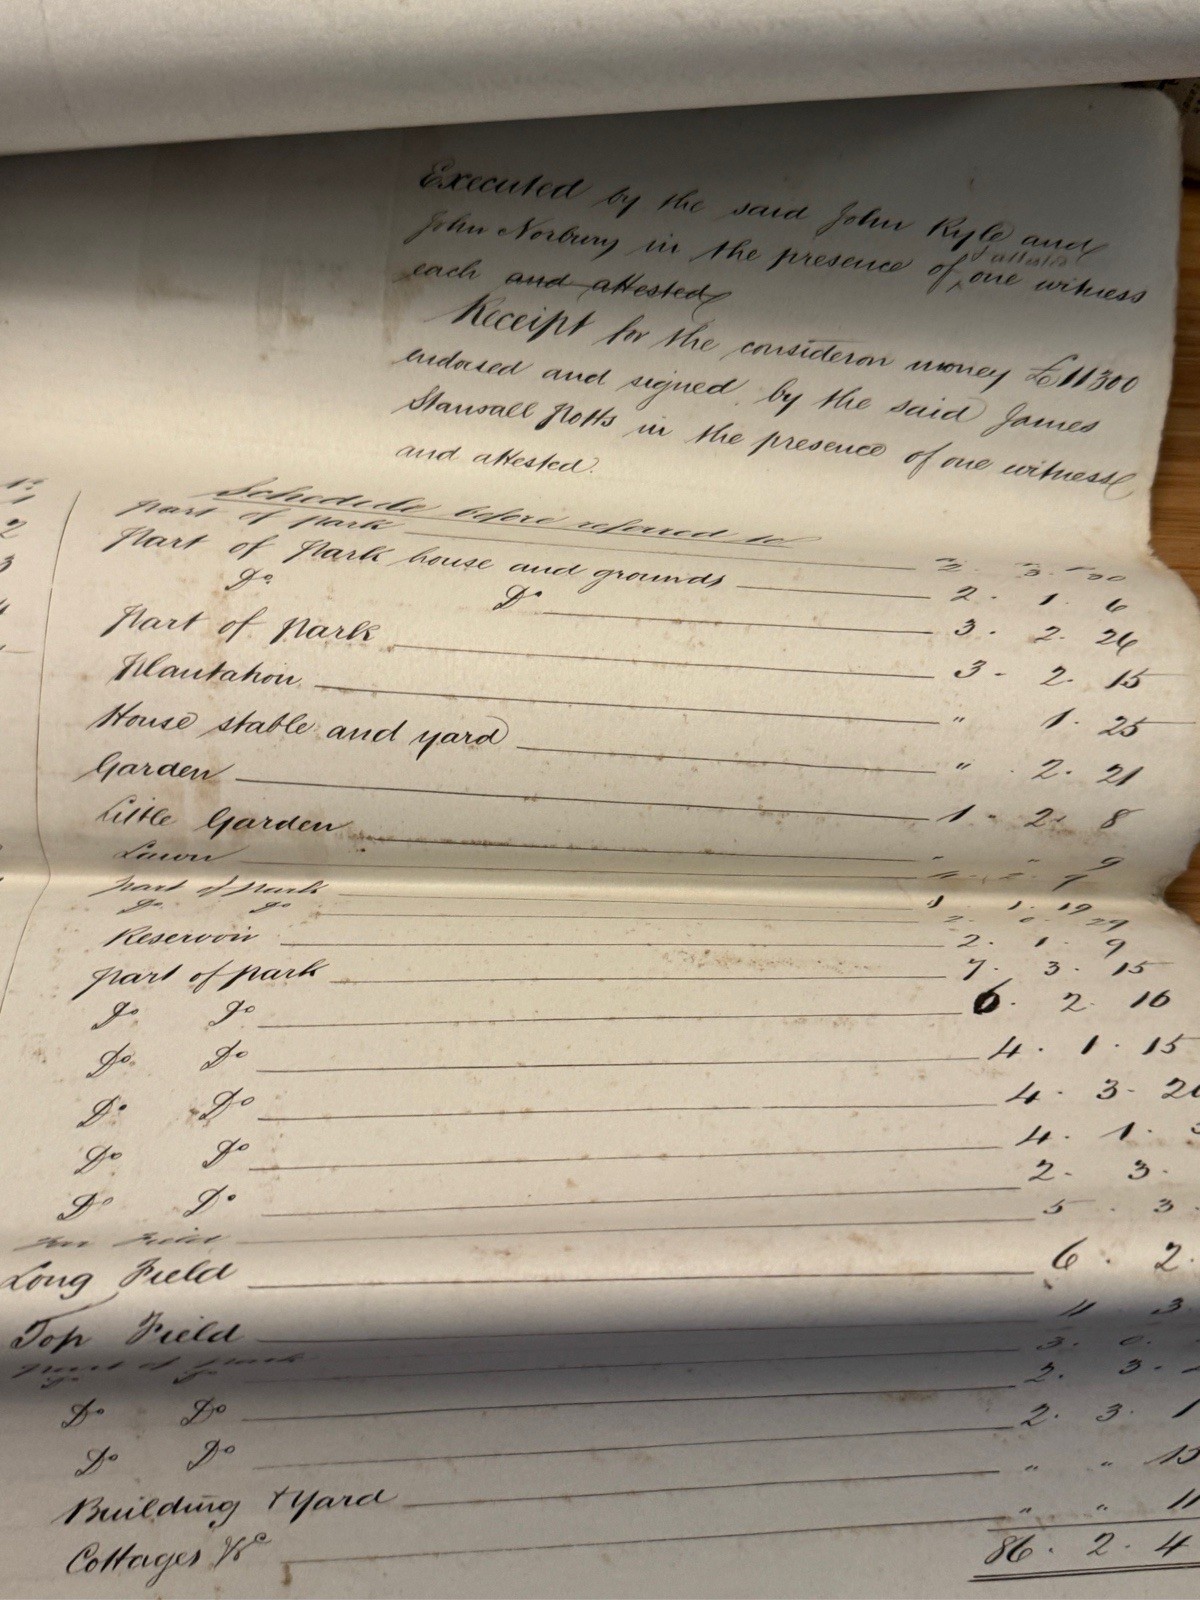 Executed by the said John Ryle and
John Norbury in the presence of attested one witness
each and attested
Receipt for the consideron money £11300
endorsed and signed by the said James
Stansall Potts in the presence of one witness
and attested.
Schedule before referred to
part of park 3. 3. 30
Part of Park house and grounds 2. 1. 6
Do Do 3. 2. 26
Part of Park 3. 2. 15
Plantation " 1. 25
House stable and yard " 2. 21
Garden 1. 2. 8
Little Garden " " 9
Lawn
part of park 1. 19
Do Do 29
Reservoir 2. 1. 9
part of park 7. 3. 15
Do Do 6. 2. 16
Do Do 4. 1. 15
Do Do 4. 3.
Do Do 4. 1.
Do Do 2. 3.
Field 5. 3.
Long Field 6. 2.
Top Field 11 3
part of park 3. 0.
Do Do 2. 3.
Do Do 2. 3. 1
Do Do " " 15
Building & Yard " " 11
Cottages &c
86. 2. 4